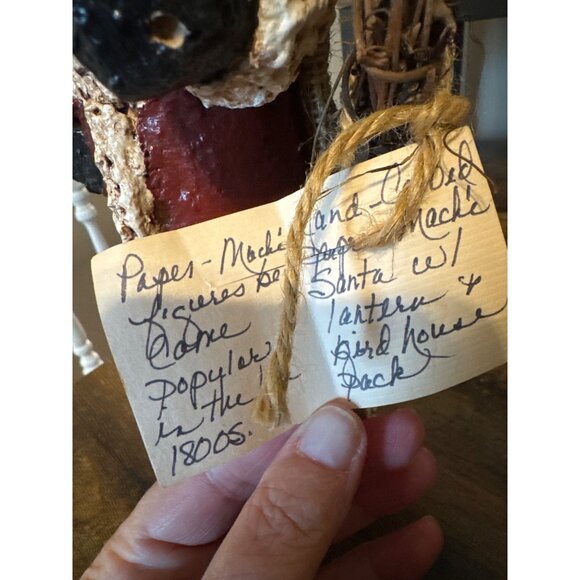 Paper-Maché
figures be-
came
popular
in the
1800s.
Hand-Carved
Paper Maché
Santa w/
lantern &
bird house
back